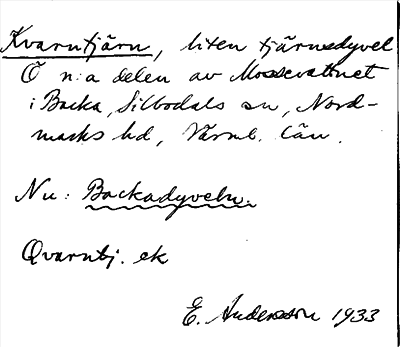 Kvarntjärn, liten tjärnsdyvel
Ö n:a delen av Mossevattnet
i Backa, Silbodals sn, Nord-
marks hd, Värml. län.
Nu: Backadyveln.
Qvarntj. ek
E. Andersson 1933